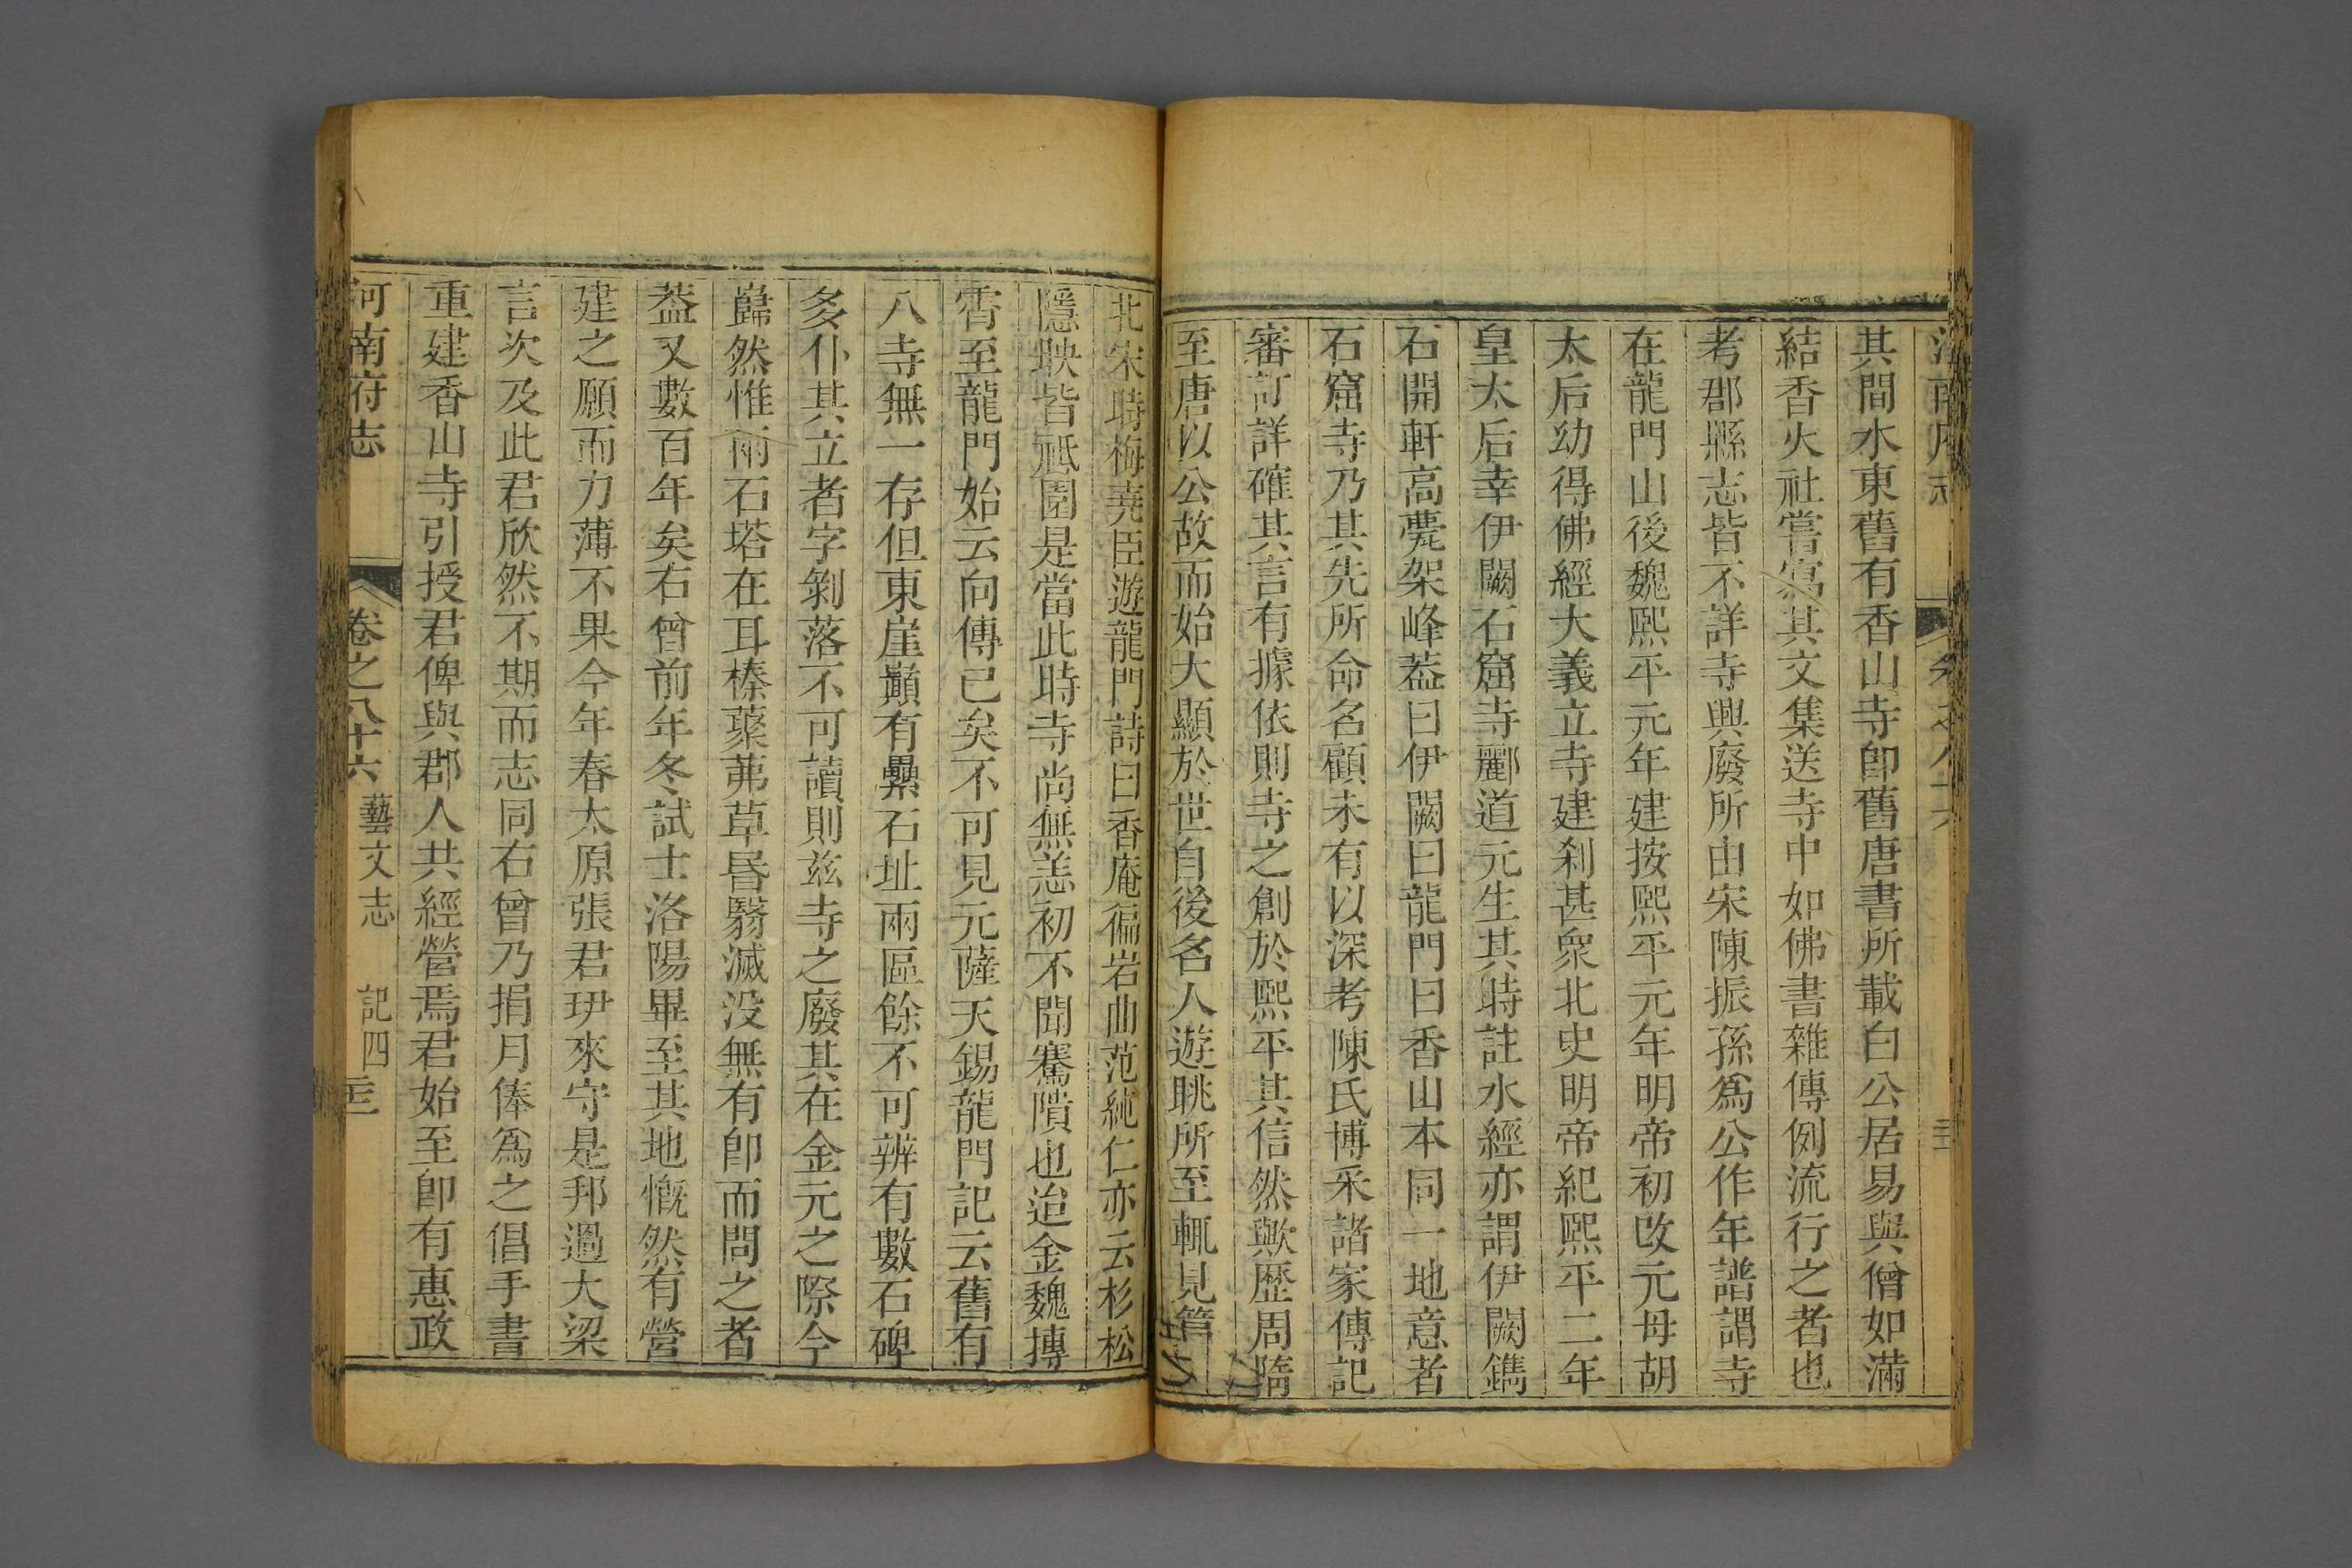 其間水東舊有香山寺卽舊唐書所載白公居易與僧如滿
結香火社嘗寫其文集送寺中如佛書雜傳例流行之者也
考郡縣志皆不詳寺興廢所由宋陳振孫爲公作年譜謂寺
在龍門山後魏熙平元年建按熙平元年明帝初改元母胡
太后幼得佛經大義立寺建刹甚衆北史明帝紀熙平二年
皇太后幸伊闕石窟寺酈道元生其時註水經亦謂伊闕鐫
石開軒高甍架峰葢曰伊闕曰龍門曰香山本同一地意者
石窟寺乃其先所命名顧未有以深考陳氏博采諸家傳記
審訂詳確其言有據依則寺之創於熙平其信然歟歷周隋
至唐以公故而始大顯於世自後名人遊眺所至輒見篇
北宋時梅堯臣遊龍門詩曰香庵徧岩曲范純仁亦云杉松
隱映皆祗園是當此時寺尚無恙初不聞騫隤也迨金魏摶
霄至龍門始云向傳已矣不可見元薩天錫龍門記云舊有
八寺無一存但東崖巓有纍石址兩區餘不可辨有數石碑
多仆其立者字剝落不可讀則兹寺之廢其在金元之際今
巋然惟兩石塔在耳榛蘽茀草昬翳滅没無有卽而問之者
葢又數百年矣右曾前年冬試士洛陽畢至其地慨然有營
建之願而力薄不果今年春太原張君玾來守是邦過大梁
言次及此君欣然不期而志同右曾乃捐月俸爲之倡手書
重建香山寺引授君俾與郡人共經營焉君始至卽有惠政
河南府志 卷之八十六 藝文志 記四